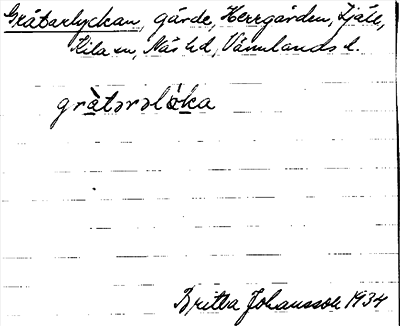 Gråtarlyckan, gärde, Herrgården, Fjäle,
Kila sn, Näs hd, Värmlands l.
gràtərəlòka
Britta Johansson 1934